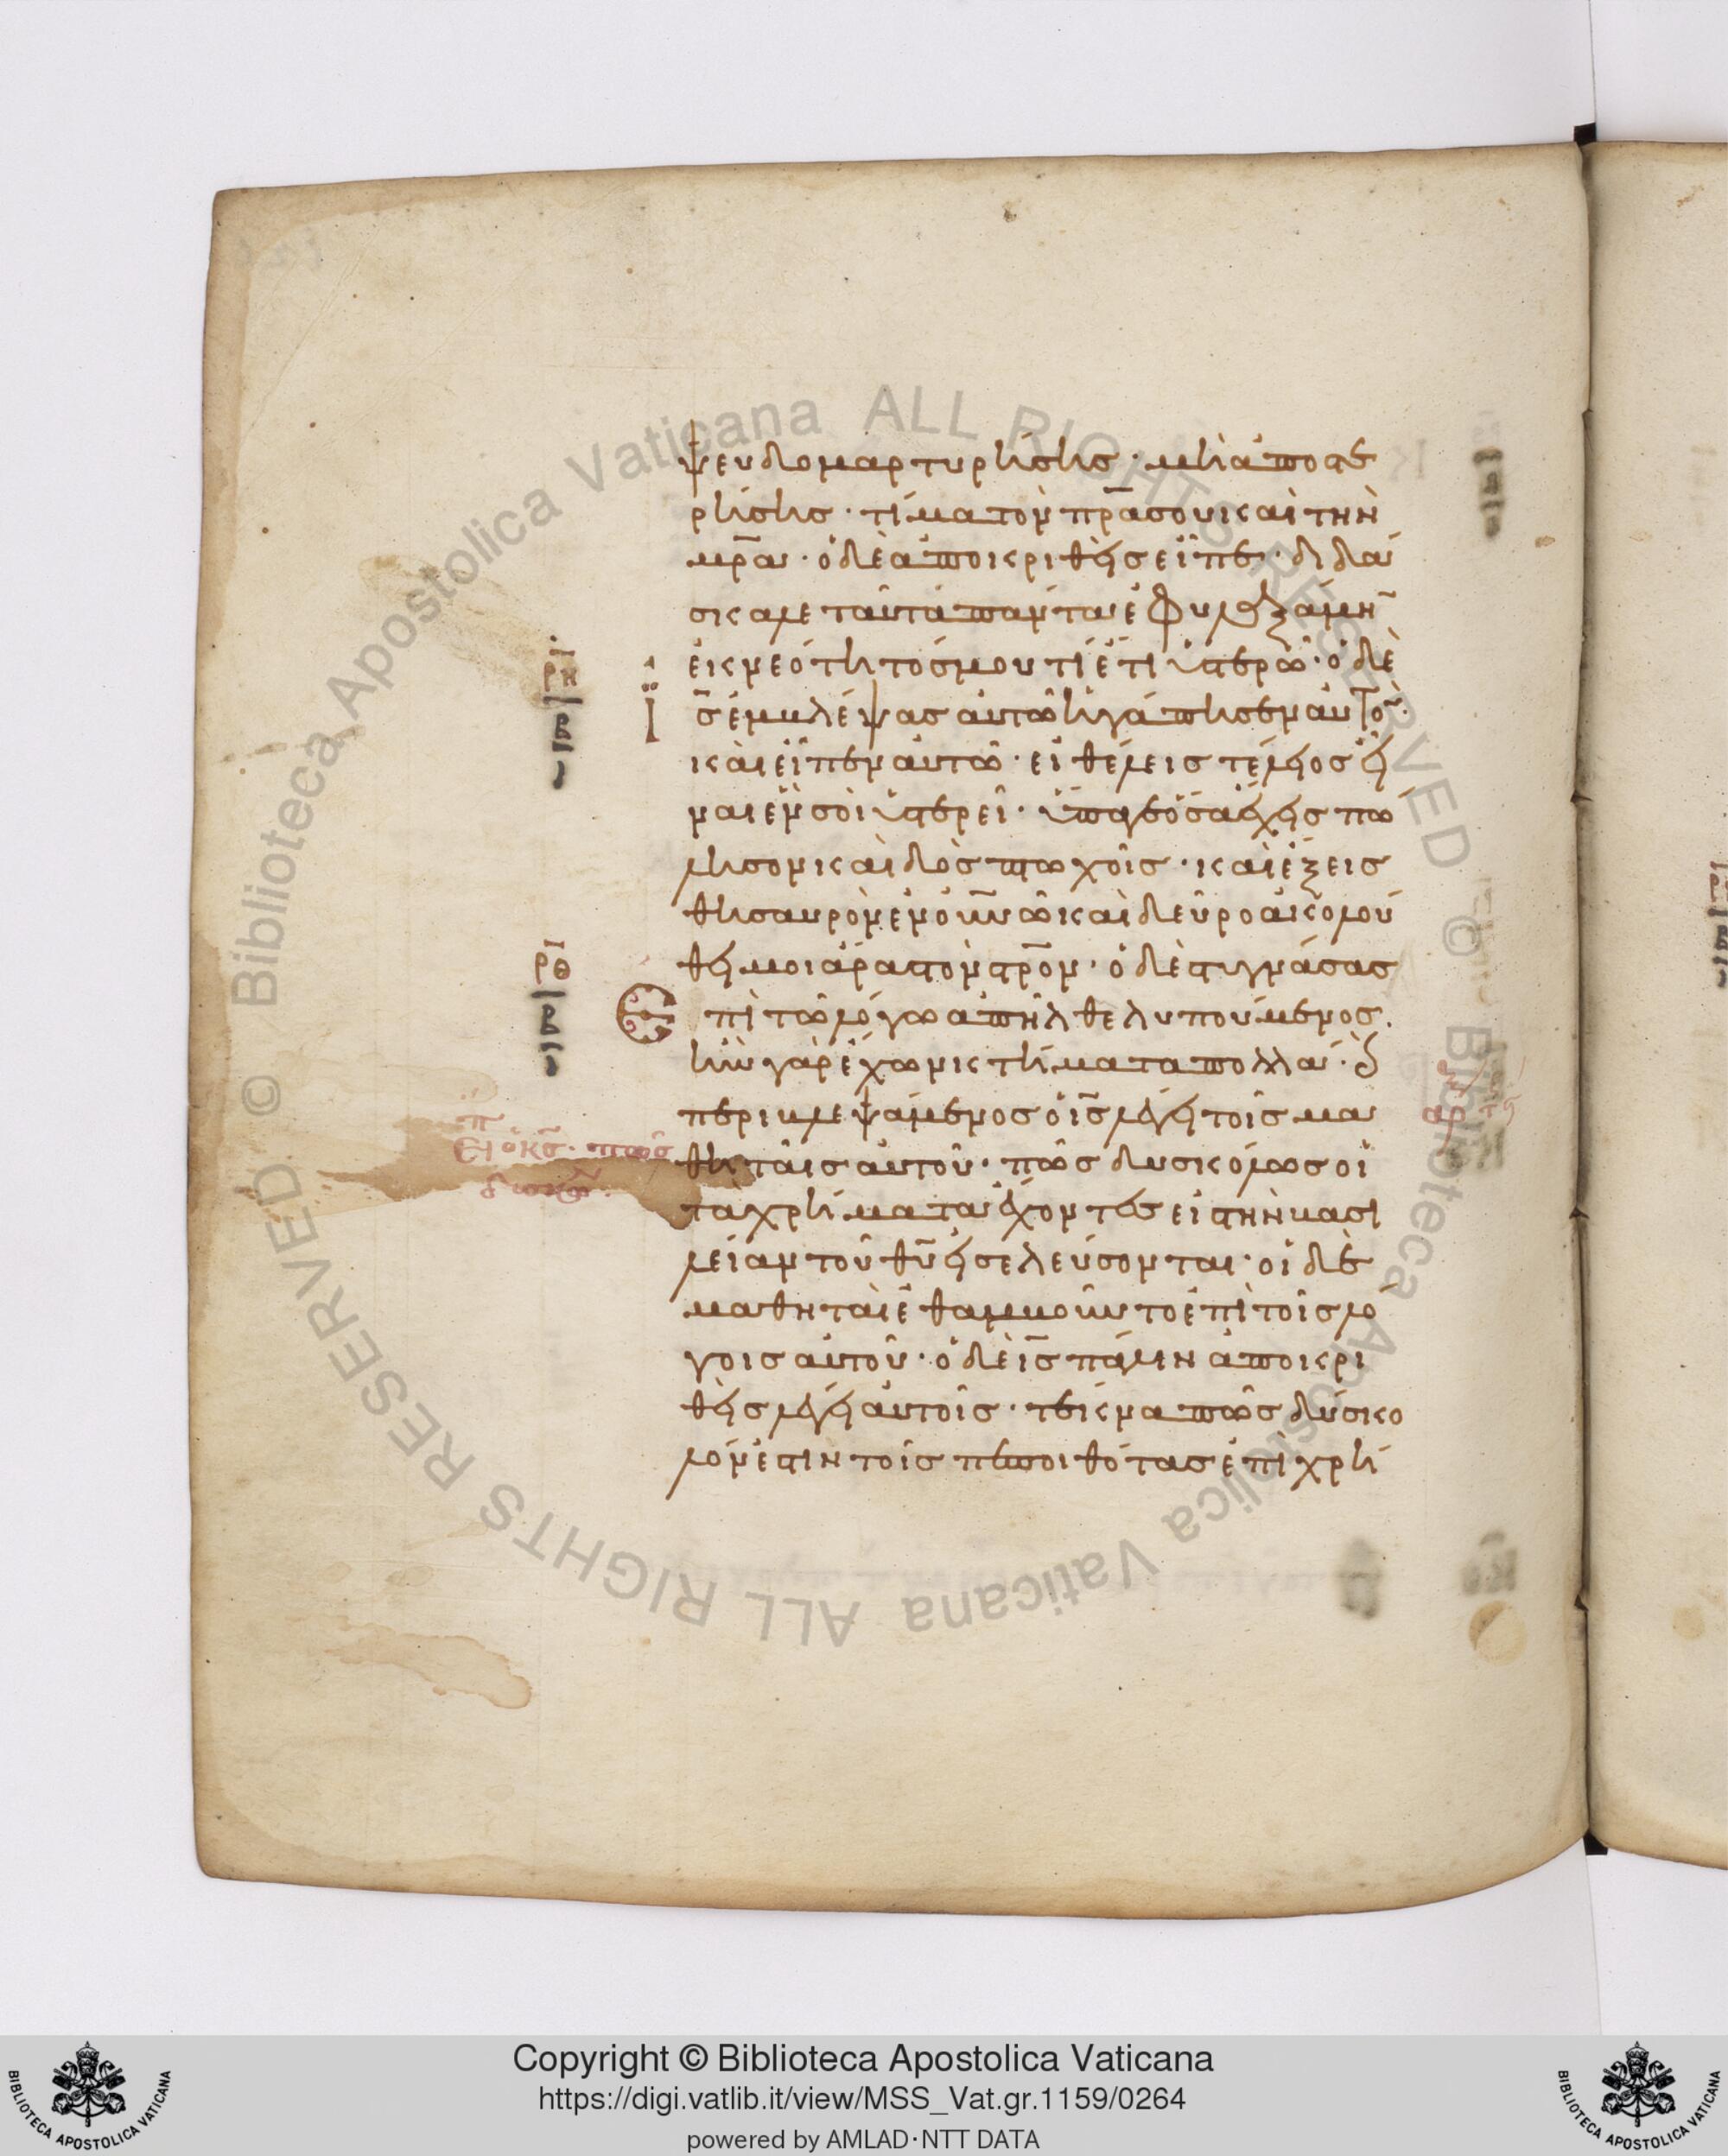 ψευδομαρτυρήσης · μὴ ἀποστε
ρήσης · τίμα τὸν πρ̅α σου καὶ τὴν
μρ̅α · ὁ δὲ ἀποκριθεὶς εἶπε · διδά
σκαλε ταῦτα πάντα ἐφυλαξάμην
ἐκ νεότητός μου τί ἔτι ὑστερῶ · ὁ δὲ
ι̅ς̅ ἐμβλέψας αὐτῶ ἠγάπησεν αὐτόν ·
καὶ εἶπεν αὐτῶ · εἰ θέλεις τέλειος εἶ
ναι ἕν σοι ὑστερεῖ · ὕπαγε ὅσα ἔχεις πώ
λησον καὶ δὸς πτωχοῖς · καὶ ἕξεις
θησαυρὸν ἐν οὐνῶ καὶ δεῦρο ἀκολού
θει μοι ἄρας τὸν στρ̅ον · ὁ δὲ στυγνάσας
Ἐπὶ τῶ λόγω ἀπῆλθε λυπούμενος ·
ἦν γὰρ ἔχων κτήματα πολλά · καὶ
περιβλεψάμενος ὁ ι̅ς̅ λέγει τοῖς μα
θηταῖς αὐτοῦ · πῶς δυσκόλως οἱ
τὰ χρήματα ἔχοντες εἰς τὴν βασι
λείαν τοῦ θυ̅ εἰσελεύσονται · οἱ δὲ
μαθηταὶ ἐθαμβοῦντο ἐπὶ τοῖς λό
γοις αὐτοῦ · ὁ δὲ ι̅ς̅ πάλιν ἀποκρι
θεὶς λέγει αὐτοῖς · τέκνα πῶς δύσκο
λόν ἐστιν τοῖς πεποιθότας ἐπὶ χρή
ρη
β
ρθ
β
Copyright © Biblioteca Apostolica Vaticana
https://digi.vatlib.it/view/MSS_Vat.gr.1159/0264
powered by AMLAD·NTT DATA
BIBLIOTECA APOSTOLICA VATICANA
BIBLIOTECA APOSTOLICA VATICANA
© Biblioteca Apostolica Vaticana ALL RIGHTS RESERVED
© Biblioteca Apostolica Vaticana ALL RIGHTS RESERVED